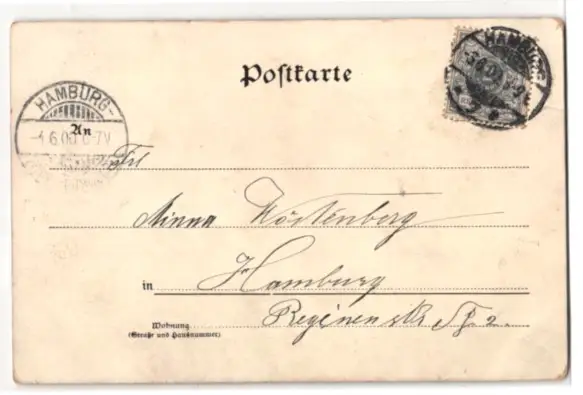 Postkarte
HAMBURG
HAMBURG
An
Frl
Minna Wöstenberg
in Hamburg
Wohnung
(Straße und Hausnummer)
Reginenstr